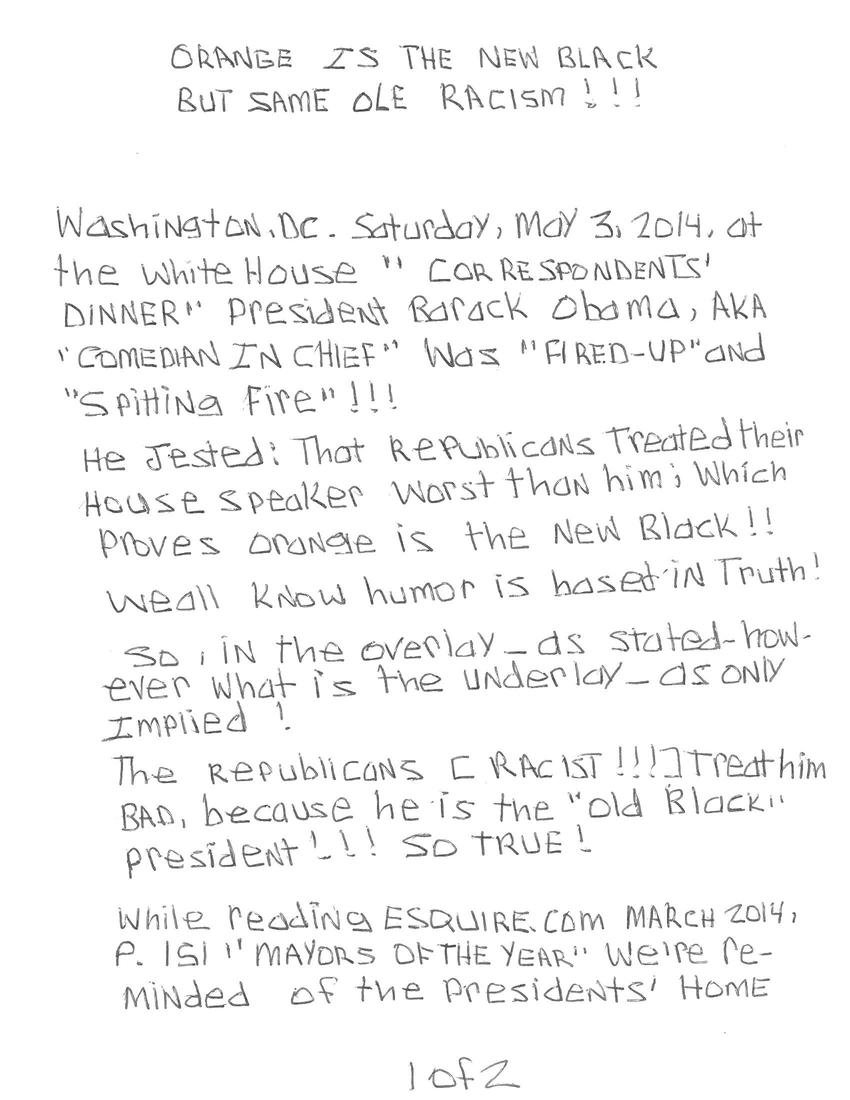 ORANGE IS THE NEW BLACK
BUT SAME OLE RACISM!!!
Washington, DC. Saturday, May 3, 2014, at
the White House " CORRESPONDENTS'
DINNER" President Barack Obama, AKA
"COMEDIAN IN CHIEF" Was "FIRED-UP" and
"Spitting Fire"!!!
He Jested: That Republicans Treated their
House speaker worst than him; Which
proves orange is the New Black!!
We all know humor is based in Truth!
So, in the overlay - as stated - how-
ever what is the underlay - as only
Implied!
The Republicans [RACIST!!!] Treat him
BAD, because he is the "old Black"
president!!! SO TRUE!
While reading ESQUIRE.COM MARCH 2014,
P. 151 "MAYORS OF THE YEAR" We're re-
minded of the presidents' HOME
1 of 2